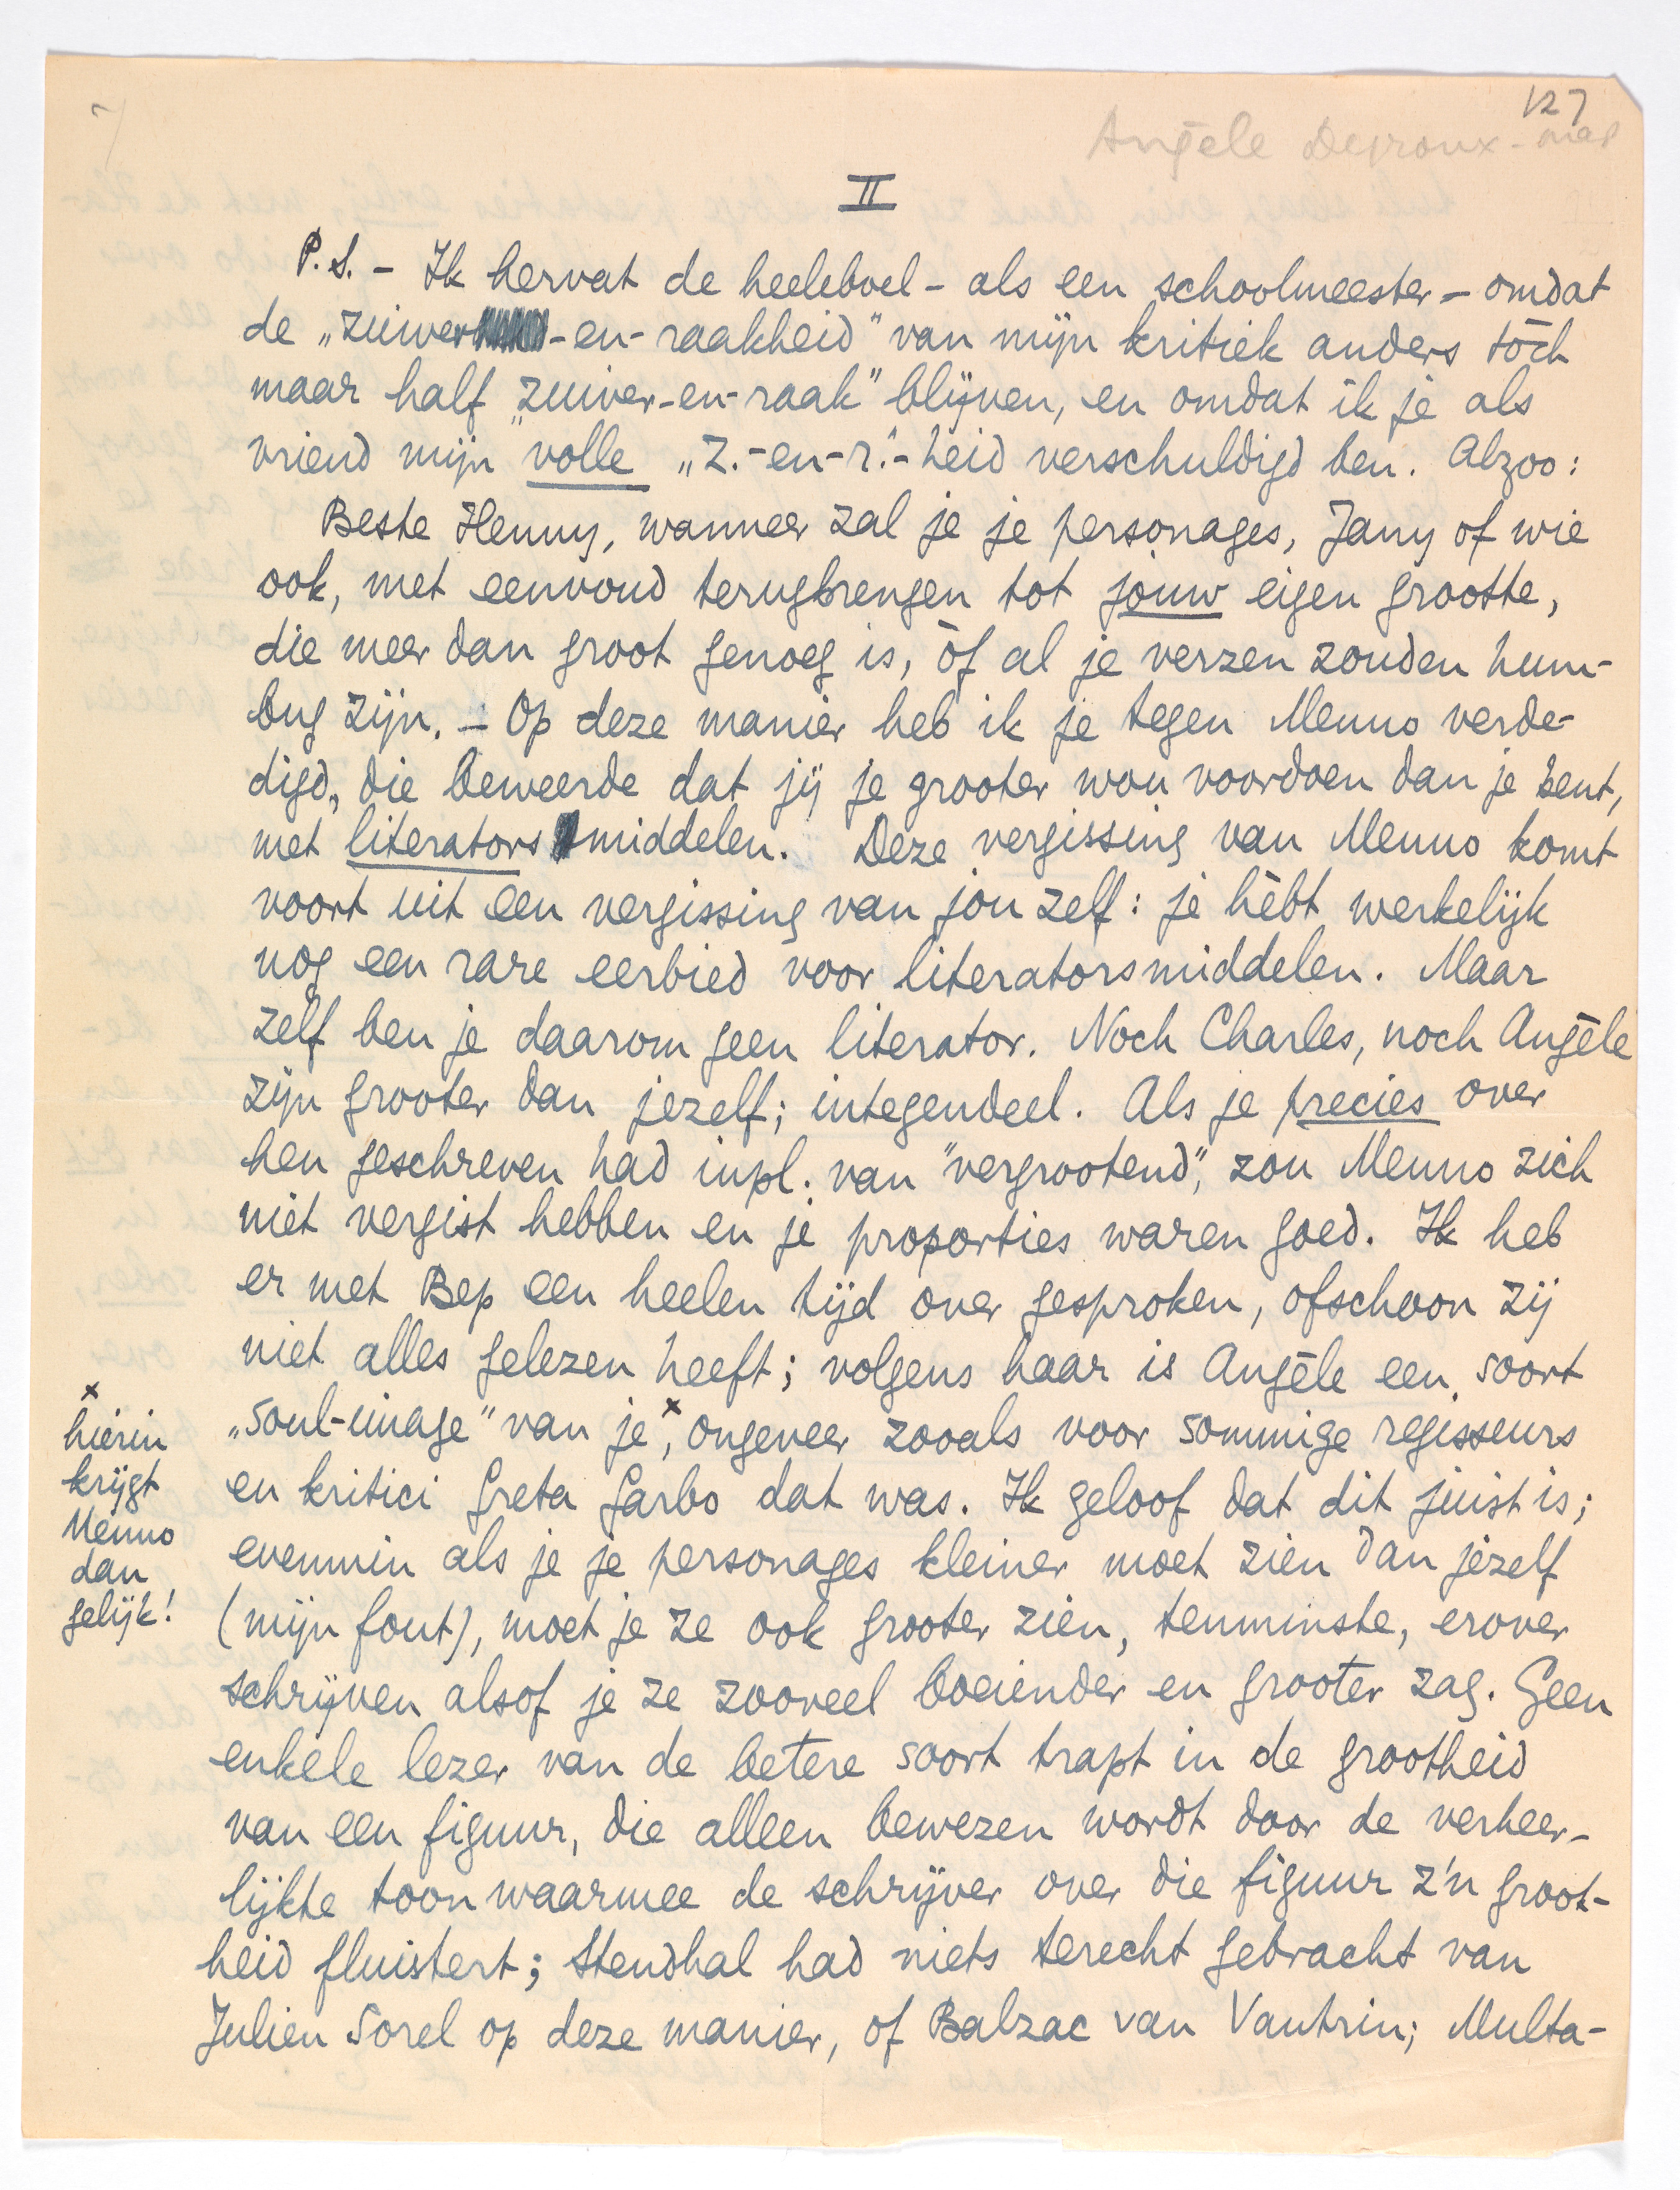 127
Angèle Degroux - map
II
P.S. - Ik hervat de heeleboel - als een schoolmeester - omdat
de „zuiver-en-raakheid" van mijn kritiek anders tòch
maar half „zuiver-en-raak" blijven, en omdat ik je als
vriend mijn volle „z.-en-r."-heid verschuldigd ben. Alzoo:
Beste Henny, wanneer zal je je personages, Jany of wie
ook, met eenvoud terugbrengen tot jouw eigen grootte,
die meer dan groot genoeg is, òf al je verzen zouden hum-
bug zijn. - Op deze manier heb ik je tegen Menno verde-
digd, die beweerde dat jij je grooter wou voordoen dan je bent,
met literatorsmiddelen. Deze vergissing van Menno komt
voort uit een vergissing van jou zelf: je hèbt werkelijk
nog een rare eerbied voor literatorsmiddelen. Maar
zelf ben je daarom geen literator. Noch Charles, noch Angèle
zijn grooter dan jezelf; integendeel. Als je precies over
hen geschreven had inpl. van "vergrootend", zou Menno zich
niet vergist hebben en je proporties waren goed. Ik heb
er met Bep een heelen tijd over gesproken, ofschoon zij
niet alles gelezen heeft; volgens haar is Angèle een soort
„soul-image" van je x, ongeveer zooals voor sommige regisseurs
en kritici Greta Garbo dat was. Ik geloof dat dit juist is;
evenmin als je je personages kleiner moet zien dan jezelf
(mijn fout), moet je ze ook grooter zien, tenminste, erover
schrijven alsof je ze zooveel boeiender en grooter zag. Geen
enkele lezer van de betere soort trapt in de grootheid
van een figuur, die alleen bewezen wordt door de verheer-
lijkte toon waarmee de schrijver over die figuur z'n groot-
heid fluistert; Stendhal had niets terecht gebracht van
Julien Sorel op deze manier, of Balzac van Vautrin; Multa-
x
hierin
krijgt
Menno
dan
gelijk!